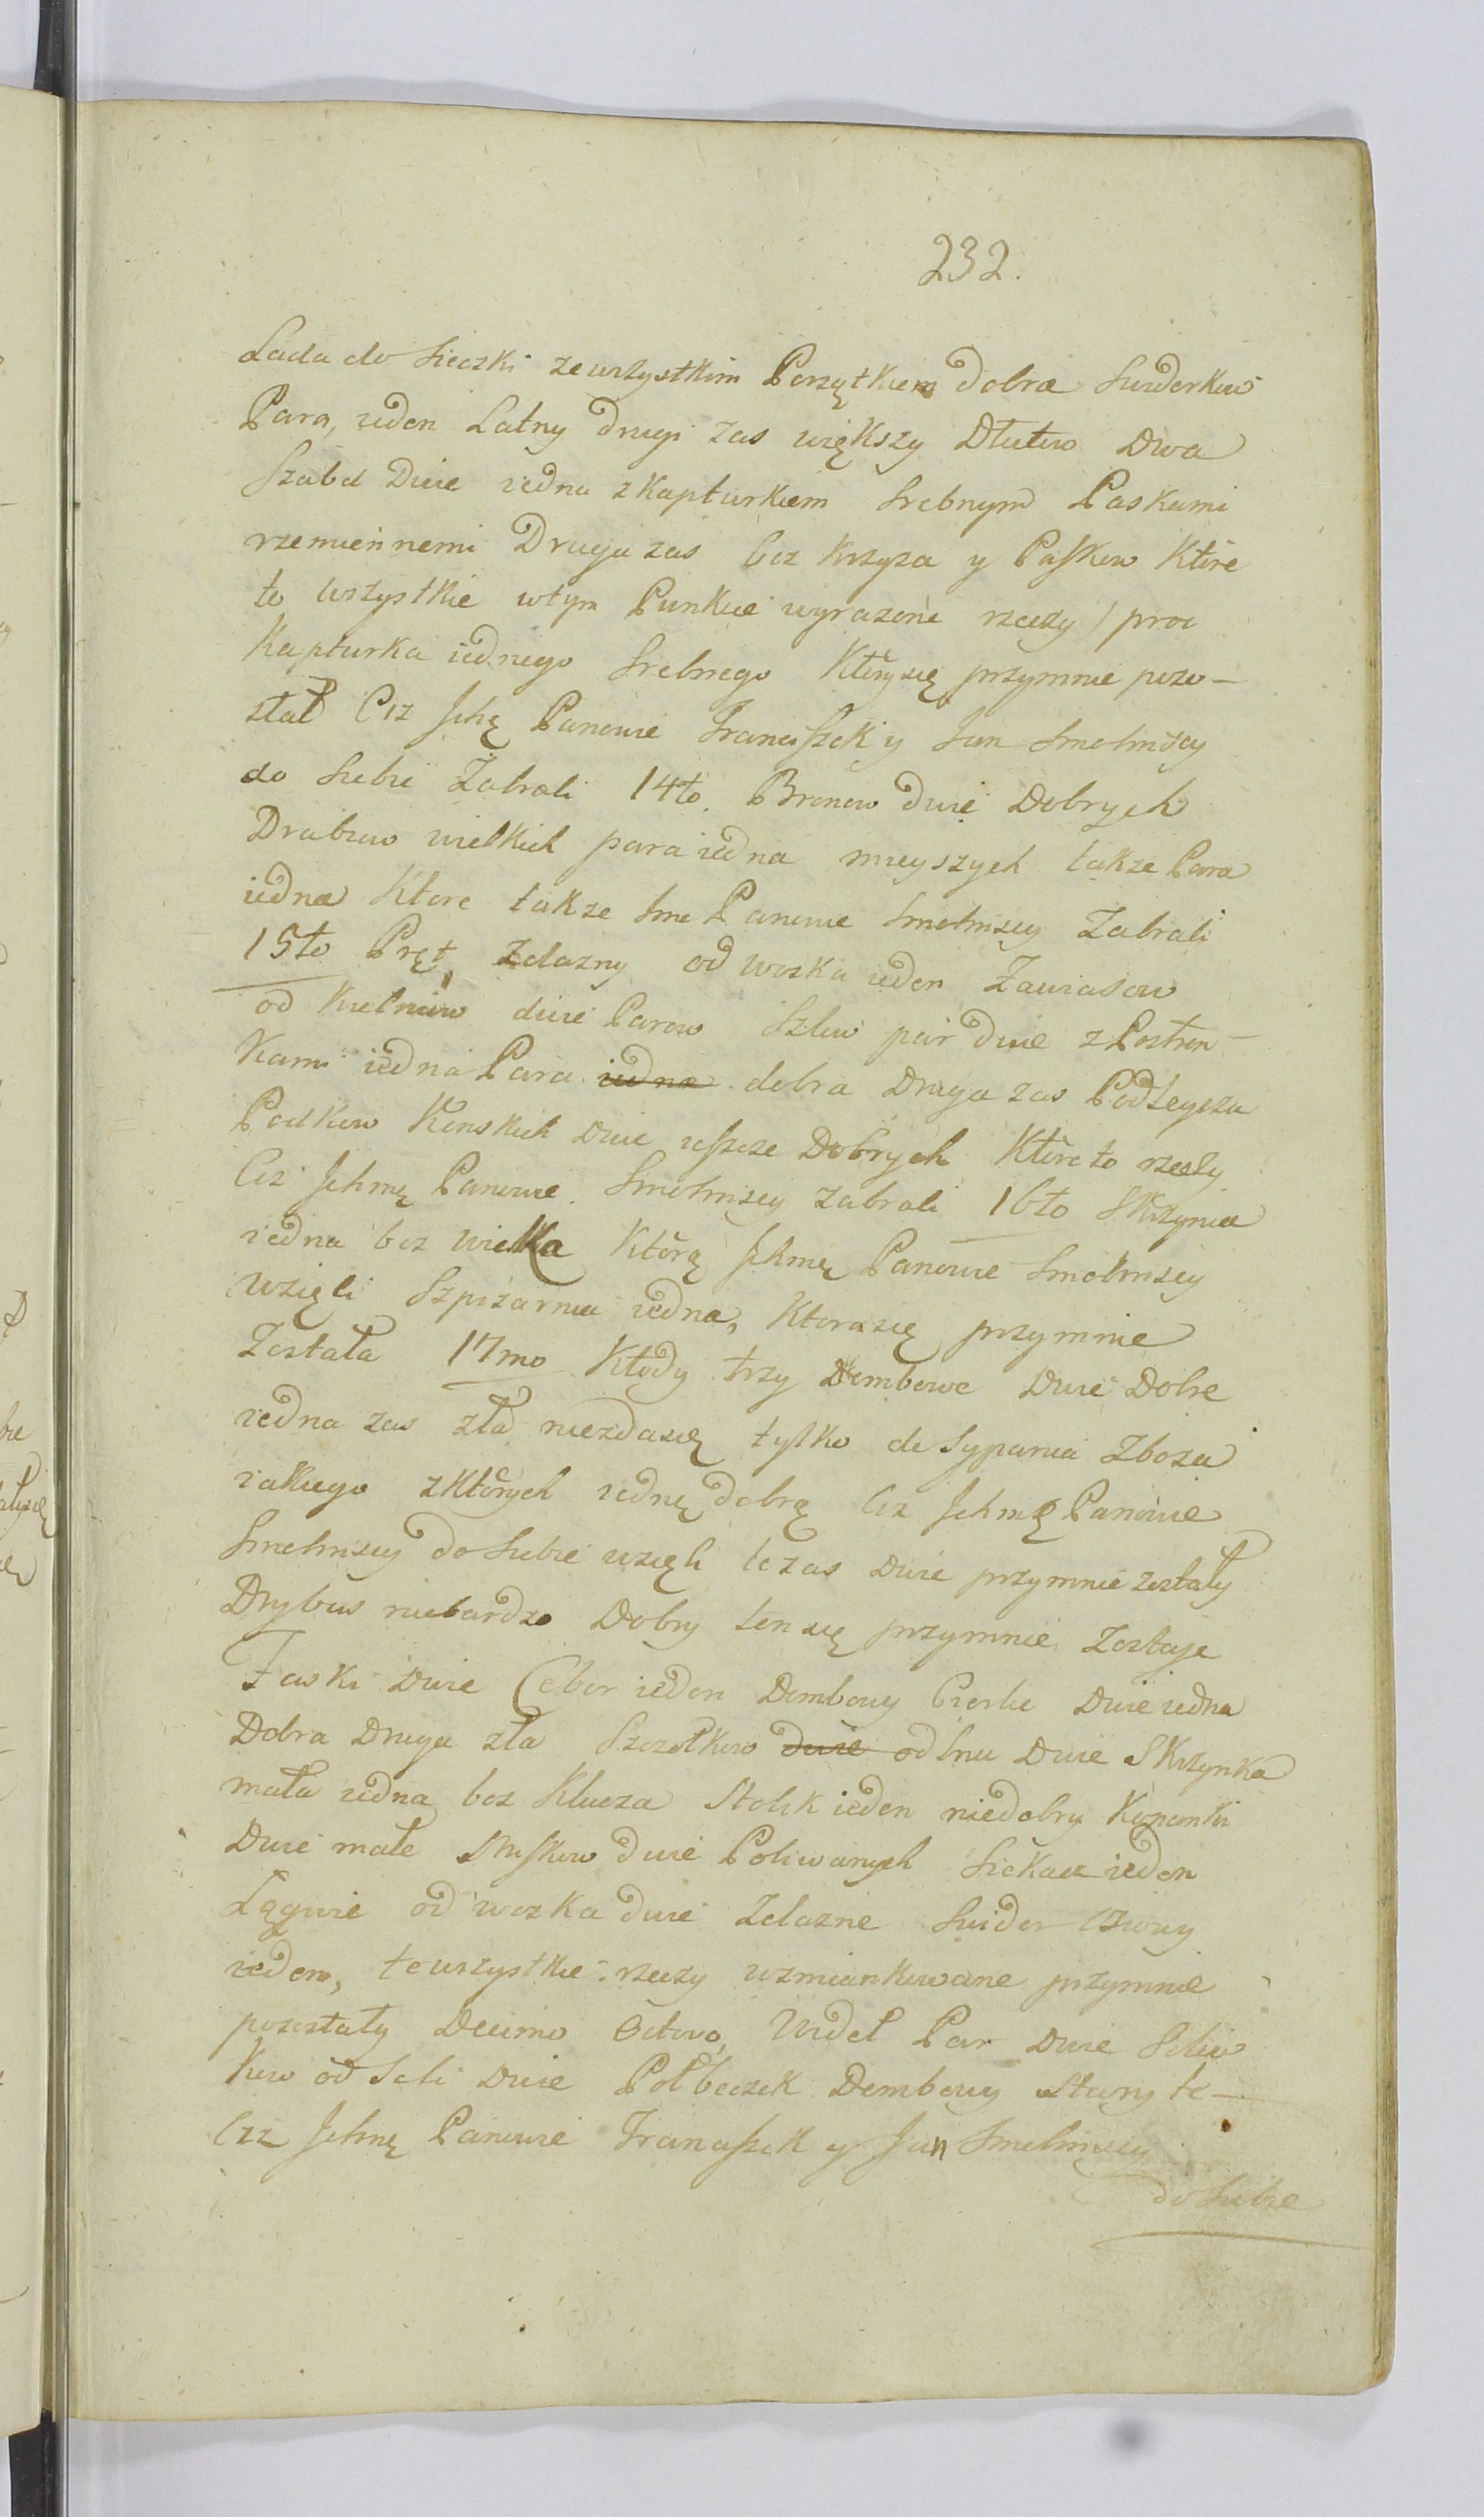 232.
Lada do Sieczki zewszystkim Porzątkiem dobra Swiderkow
Para, ieden Latny drugi zas większy Dłutow Dwa
Szabel Dwie iedna z kapturkiem Srebnym Paskami
rzemiennemi Druga zas bez krzyza y Paskow Które
to wszystkie wtym Punkcie wyrazone rzeczy / procz
kapturka iednego Srebnego Który się przymnie pozo-
stał Ciz Jchę Panowie Franciszek y Jan Smolinscy
do Siebie Zabrali 14to. Bronow dwie Dobrych
Drabiow wielkich para iedna mnieyszych takze Para
iedna Ktore takze Jme Panowie Smolinscy Zabrali
15to Pręt Zelazny od wozka ieden Zawiasow
od dwie Parow Szlow par dwie z Postron-
kami iedna Para iedna dobra Druga zas Podleysza
Podkow Konskich Dwie ieszcze Dobrych Które to rzeczy
Ciz Jchmę Panowie Smolinscy zabrali 16to Skrzynia
iedna bez wieka Którą Jchmę Panowie Smolinscy
wzięli Szpizarnia iedna, Ktora się przymnie
Została 17mo Kłody trzy Dembowe Dwie Dobre
iedna zas zła niezdasię tylko do Sypania Zboza
iakiego z Których iednę dobrą Ciz Jchmę Panowie
Smolinscy do Siebie wzięli te zas Dwie przymnie zostały
Drybus niebardzo Dobry ten się przymnie Zostaje
Faski Dwie Cebor ieden Dembowy Dwie iedna
Dobra Druga zła Szczotkow dwie od lnu Dwie Skrzynka
mała iedna bez Klucza Stolik ieden niedobry Kopanki
Dwie małe dwie Poliwanych Siekacz ieden
Lągwie od wozka dwie Zelazne Swider
ieden, te wszystkie rzeczy wzmiankowane przymnie
pozostały Decimo Octavo, Wideł Par Dwie
kow od Soli Dwie Połbeczek Dembowy Stary te-
Ciz Jchmę Panowie Franciszek y Jan Smolinscy
do Siebie